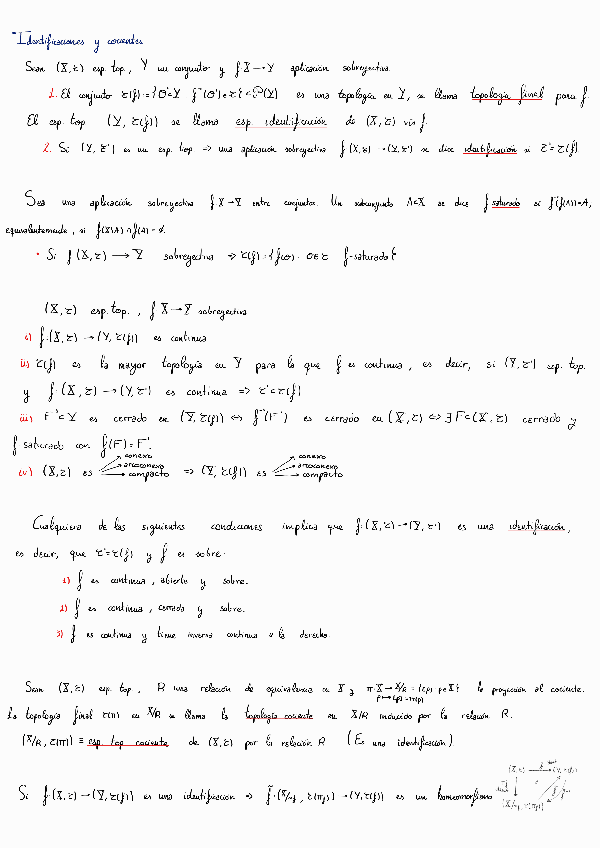 Identificaciones y cocientes
Sean (X,τ) esp. top., Y un conjunto y f:X→Y aplicación sobreyectiva.
1. El conjunto τ(f)={O'⊂Y: f⁻¹(O')∈τ}⊂P(Y) es una topología en Y, se llama topología final para f.
El esp. top (Y,τ(f)) se llama esp. identificación de (X,τ) vía f.
2. Si (Y,τ') es un esp. top ⇒ una aplicación sobreyectiva f:(X,τ)→(Y,τ') se dice identificación si τ'=τ(f)
Sea una aplicación sobreyectiva f:X→Y entre conjuntos. Un subconjunto A⊂X se dice f-saturado si f⁻¹(f(A))=A,
equivalentemente, si f(X\A)∩f(A)=∅.
• Si f:(X,τ)→Y sobreyectiva ⇒ τ(f)={f(O): O∈τ f-saturado}
(X,τ) esp. top., f:X→Y sobreyectiva
i) f:(X,τ)→(Y,τ(f)) es continua
ii) τ(f) es la mayor topología en Y para la que f es continua, es decir, si (Y,τ') esp. top.
y f:(X,τ)→(Y,τ') es continua ⇒ τ'⊂τ(f)
iii) F'⊂Y es cerrado en (Y,τ(f)) ⇔ f⁻¹(F') es cerrado en (X,τ) ⇔ ∃F⊂(X,τ) cerrado y
f saturado con f(F)=F'.
iv) (X,τ) es conexo arcoconexo compacto ⇒ (Y,τ(f)) es conexo arcoconexo compacto
Cualquiera de las siguientes condiciones implica que f:(X,τ)→(Y,τ') es una identificación,
es decir, que τ'=τ(f) y f es sobre.
1) f es continua, abierta y sobre.
2) f es continua, cerrada y sobre.
3) f es continua y tiene inversa continua a la derecha.
Sean (X,τ) esp. top, R una relación de equivalencia en X y π:X→X/R={[p]: p∈X} la proyección al cociente.
p↦[p]=π(p)
La topología final τ(π) en X/R se llama la topología cociente en X/R inducida por la relación R.
(X/R,τ(π)) ≡ esp. top cociente de (X,τ) por la relación R (Es una identificación).
Si f:(X,τ)→(Y,τ(f)) es una identificación ⇒ f̃:(X/Rf,τ(πf))→(Y,τ(f)) es un homeomorfismo